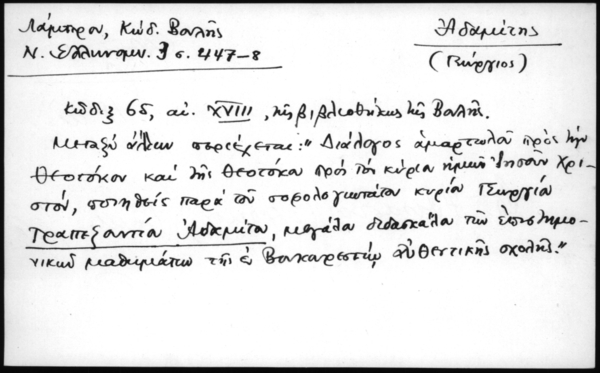 Λάμπρου, Κώδ. Βουλῆς
Ν. Ἑλληνομν. 3 σ. 447-8
Ἀδαμίτης
(Γεώργιος)
Κῶδιξ 65, αἰ. XVIII, τῆς βιβλιοθήκης τῆς Βουλῆς.
Μεταξὺ ἄλλων περιέχεται: "Διάλογος ἁμαρτωλοῦ πρὸς τὴν
Θεοτόκον καὶ τῆς Θεοτόκου πρὸς τὸν κύριον ἡμῶν Ἰησοῦν Χρι-
στόν, ποιηθεὶς παρὰ τοῦ σοφολογιωτάτου κυρίου Γεωργίου
Τραπεζουντίου Ἀδαμίτου, μεγάλου διδασκάλου τῶν ἐπιστημο-
νικῶν μαθημάτων τῆς ἐν Βουκαρεστίῳ αὐθεντικῆς σχολῆς."